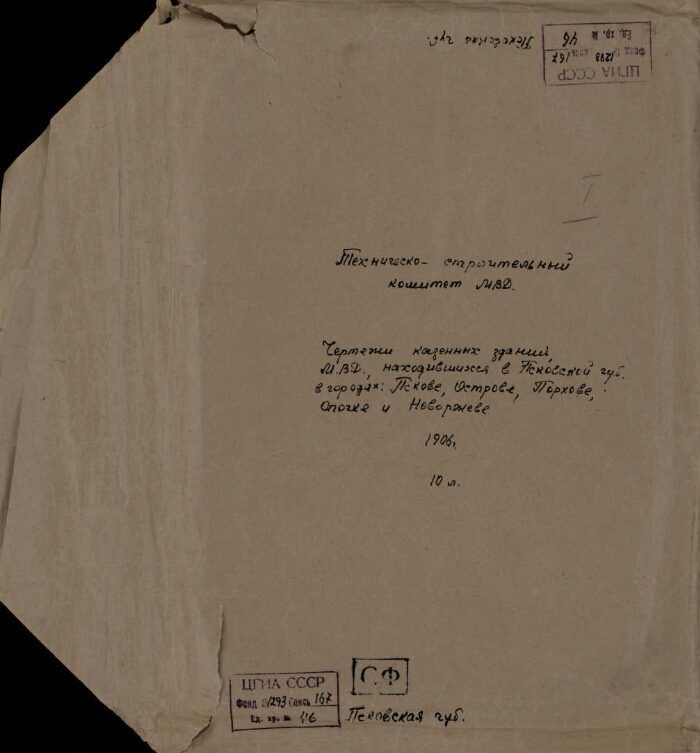 Псковская губ.
ЦГИА СССР
Фонд № 1293 Опись 167
Ед. хр. № 46
I
Техническо- строительный
комитет МВД.
Чертежи казенных зданий
МВД., находившихся в Псковской губ.
в городах: Пскове, Острове, Порхове,
Опочке и Новоржеве
1906г.
10 л.
С.Ф
ЦГИА СССР
Фонд № 1293 Опись 167
Ед. хр. № 46
Псковская губ.